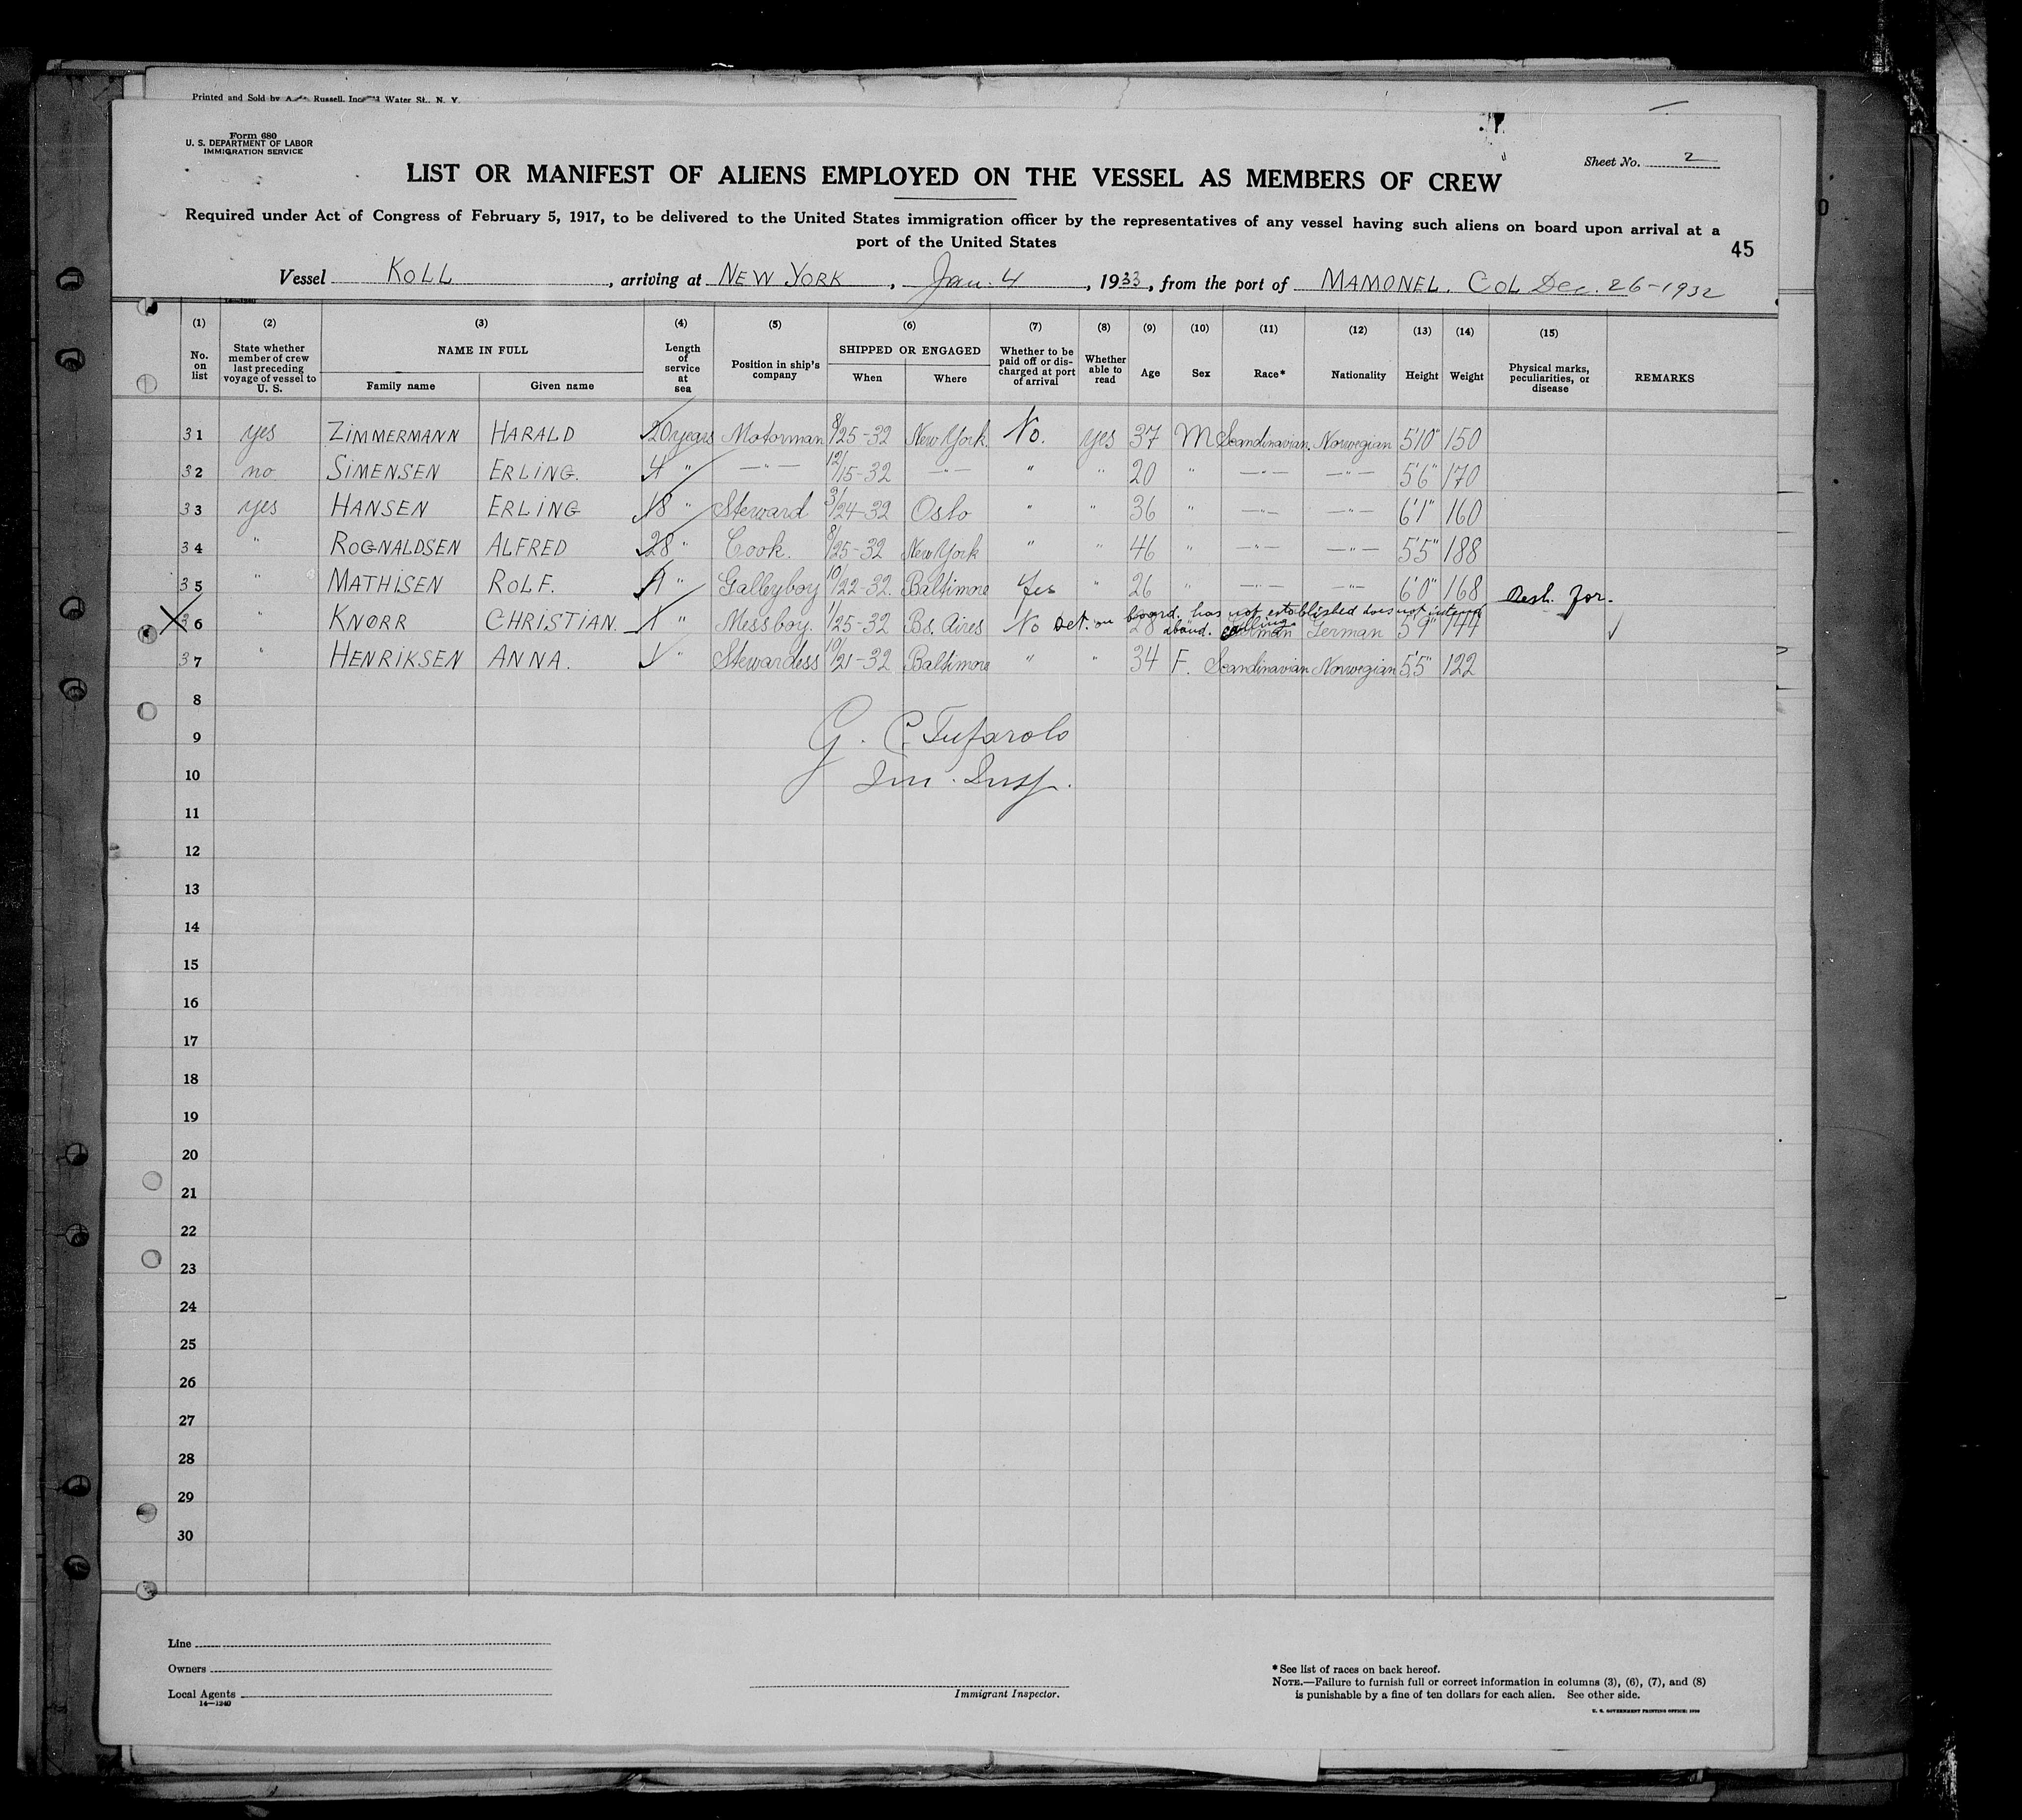 Printed and Sold by Russell, Inc. Water St., N. Y.
Form 680
U. S. DEPARTMENT OF LABOR
IMMIGRATION SERVICE
Sheet No. 2
LIST OR MANIFEST OF ALIENS EMPLOYED ON THE VESSEL AS MEMBERS OF CREW
Required under Act of Congress of February 5, 1917, to be delivered to the United States immigration officer by the representatives of any vessel having such aliens on board upon arrival at a
port of the United States
45
Vessel KOLL, arriving at NEW YORK, Jan. 4, 1933, from the port of MAMONEL. COL Dec. 26-1932
(1) (2) (3) (4) (5) (6) (7) (8) (9) (10) (11) (12) (13) (14) (15)
No. on list State whether member of crew last preceding voyage of vessel to U. S. NAME IN FULL Family name Given name Length of service at sea Position in ship's company SHIPPED OR ENGAGED When Where Whether to be paid off or discharged at port of arrival Whether able to read Age Sex Race* Nationality Height Weight Physical marks, peculiarities, or disease REMARKS
31 yes ZIMMERMANN HARALD 20 years Motorman 8/25-32 New York. No. yes 37 M Scandinavian. Norwegian 5'10" 150
32 no SIMENSEN ERLING. 4 " —"— 12/15-32 —"— " " 20 " —"— —"— 5'6" 170
33 yes HANSEN ERLING 18 " Steward 3/24-32 Oslo " " 36 " —"— —"— 6'1" 160
34 " ROGNALDSEN ALFRED 28 " Cook. 8/25-32 New York " " 46 " —"— —"— 5'5" 188
35 " MATHISEN ROLF. " Galleyboy 10/22-32. Baltimore Yes " 26 " —"— —"— 6'0" 168
36 " KNØRR CHRISTIAN. 1 " Messboy. 1/25-32 Bs. Aires No Det. on board. has not established does not intend aband. calling. 28 " German German 5'9" 144 ✓
37 " HENRIKSEN ANNA. " Stewardess 10/21-32 Baltimore " " 34 F. Scandinavian Norwegian 5'5" 122
G. C. Tufarolo
Im. Insp.
8
9
10
11
12
13
14
15
16
17
18
19
20
21
22
23
24
25
26
27
28
29
30
Line
Owners
Local Agents
14—1240
Immigrant Inspector.
*See list of races on back hereof.
NOTE.—Failure to furnish full or correct information in columns (3), (6), (7), and (8)
is punishable by a fine of ten dollars for each alien. See other side.
U. S. GOVERNMENT PRINTING OFFICE: 1930